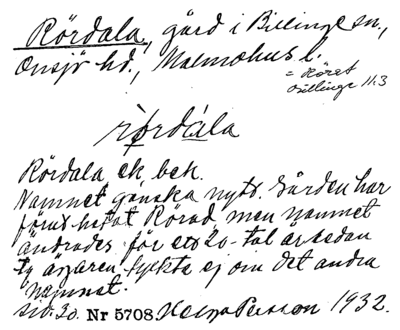 Rördala, gård i Billinge sn.,
Onsjö hd., Malmöhus l.
= Röret
Billinge 11.3
rø̀rdála
Rördala ek. bek.
Namnet ganska nytt. Gården har
förut hetat Rörad men namnet
ändrades för ett 20-tal år sedan
ty ägaren tyckte ej om det andra
namnet.
sid. 20. Nr 5708 Persson 1932.